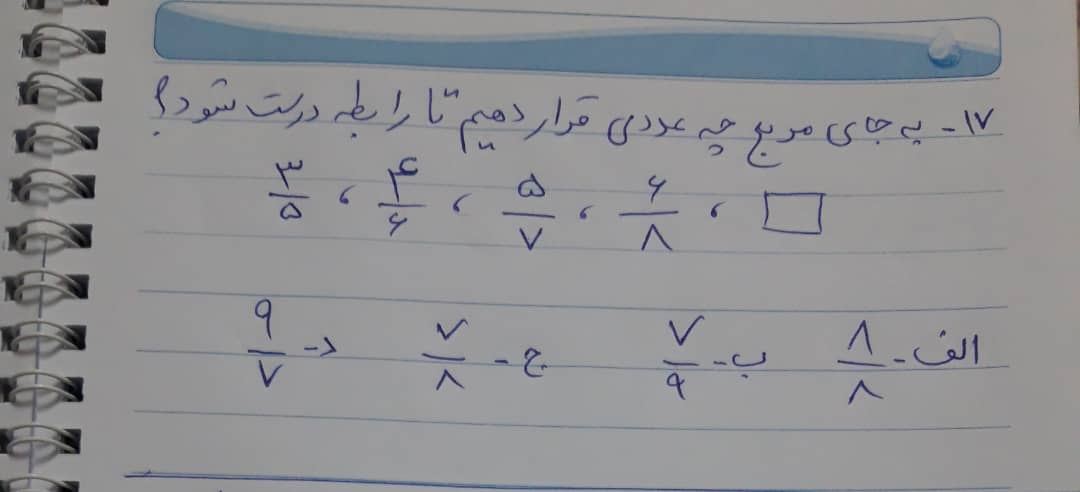 ۱۷- به جای مربع چه عددی قرار دهیم تا رابطه درست شود؟
۳/۵ ، ۴/۶ ، ۵/۷ ، ۶/۸ ، □
الف- ۸/۸ ب- ۷/۹ ج- ۷/۸ د- ۹/۷